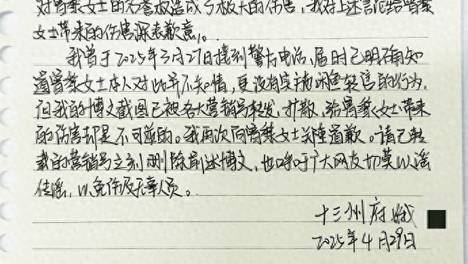 对曾某女士的名誉权造成了极大的伤害，我对上述言论给曾某
女士带来的伤害深表歉意。
我曾于2025年3月27日接到警方电话，届时已明确知
道曾某女士本人对此并不知情，更没有实施闲鱼转售的行为，
但我的博文截图已被各大营销号转发、扩散，给曾某女士带来
的伤害却是不可逆的。我再次向曾某女士郑重道歉。请已转
载的营销号立刻删除前述博文，也呼吁广大网友切莫以谣
传谣，以免伤及无辜人员。
十三州府娥
2025年4月29日